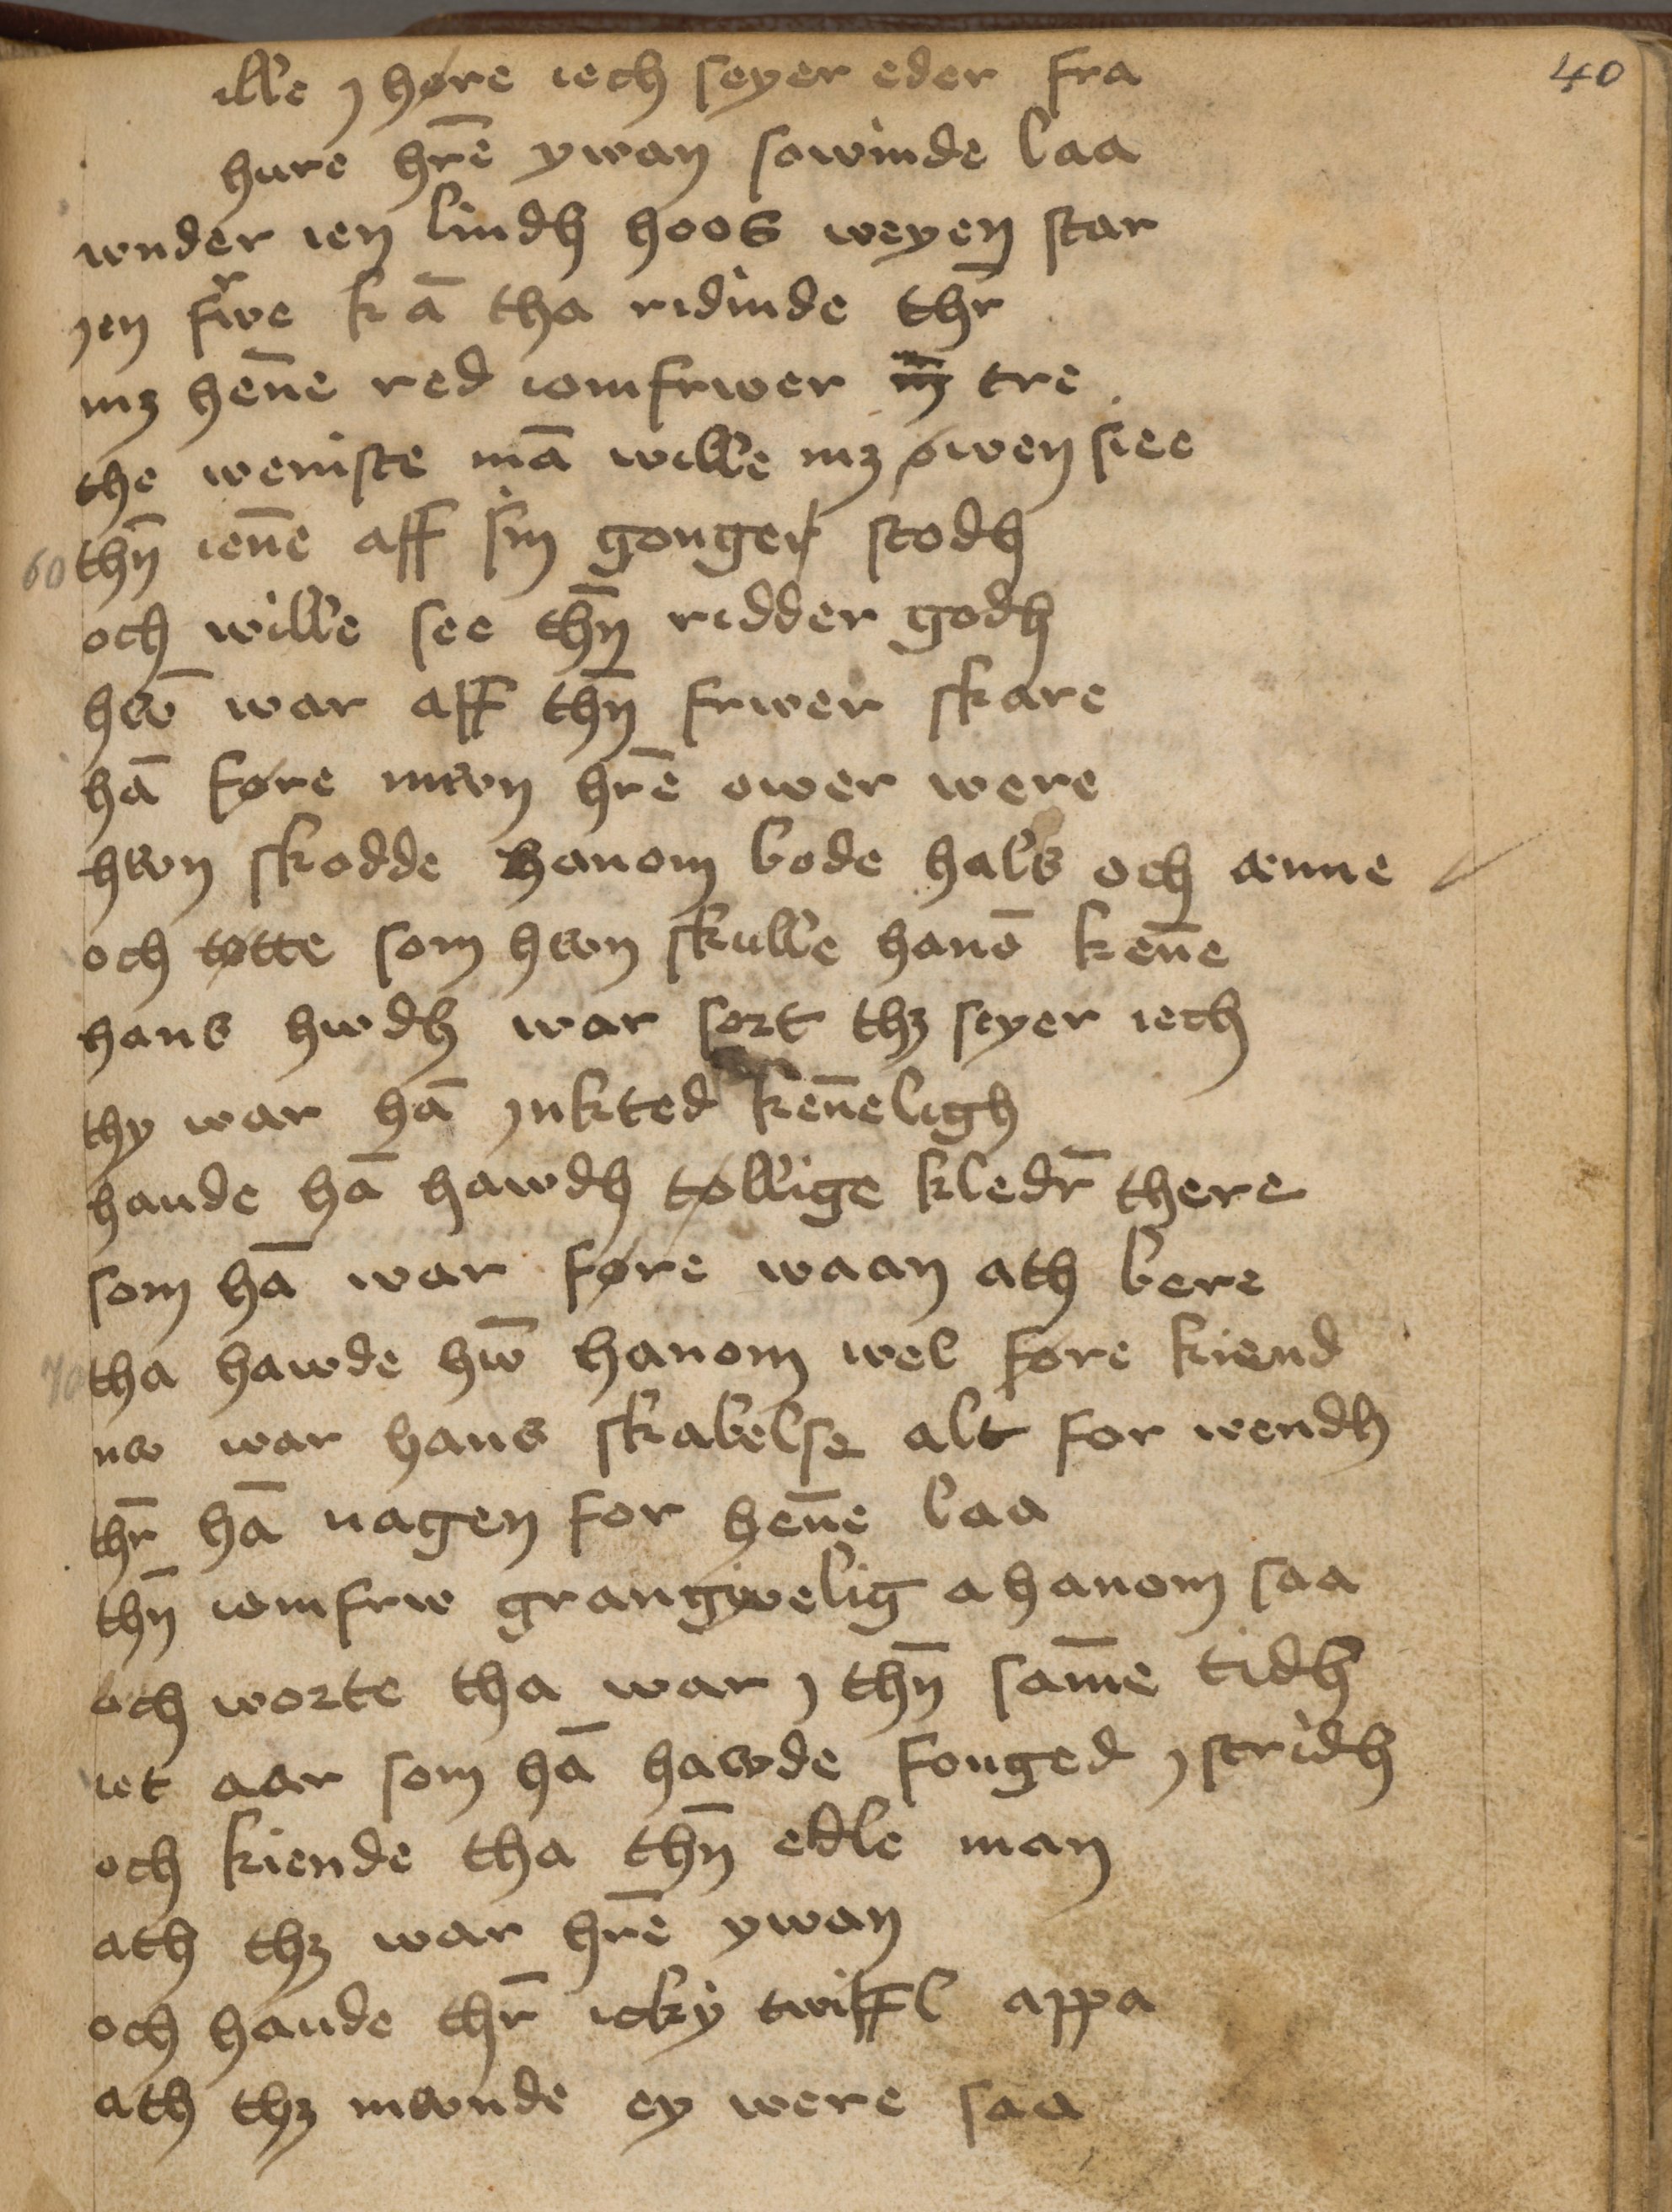 40
ille ȷ høre iech seyer eder fra
hure hr̄e ywan sowinde laa
wnder ien lindh hoos weyen star
ȷen frwe kā tha ridinde thr̄
mꝫ hen̄e red iomfrwer tre
the weniste mā wille mꝫ øwen siee
60 thn̄ ien̄e aff sin gonger stodh
och wille see thn̄ ridder godh
hw̄ war aff thn̄ frwer skare
hā føre mwn hr̄e ower were
hwn skodde hanom bode hals och ænne
och tøtte som hwn skulle hanō ken̄e
hans hwdh war sort thꝫ seyer iech
thy war hā ȷnkted ken̄eligh
hande hā hawdh tøllige kledr̄ there
som hā war føre waan ath bere
70 tha hawde hw̄ hanom wel føre kiend
nw war hans skabelse alt for wendh
thr̄ hā nagen for hen̄e laa
thn̄ iomfrw grangiwelig a hanom saa
och worte tha war ȷ thn̄ sam̄e tidh
iet aar som hā hawde fonged ȷ stridh
och kiende tha thn̄ edle man
ath thꝫ war hr̄e ywan
och hande thr̄ icky twiffl appa
ath thꝫ mwnde ey were saa